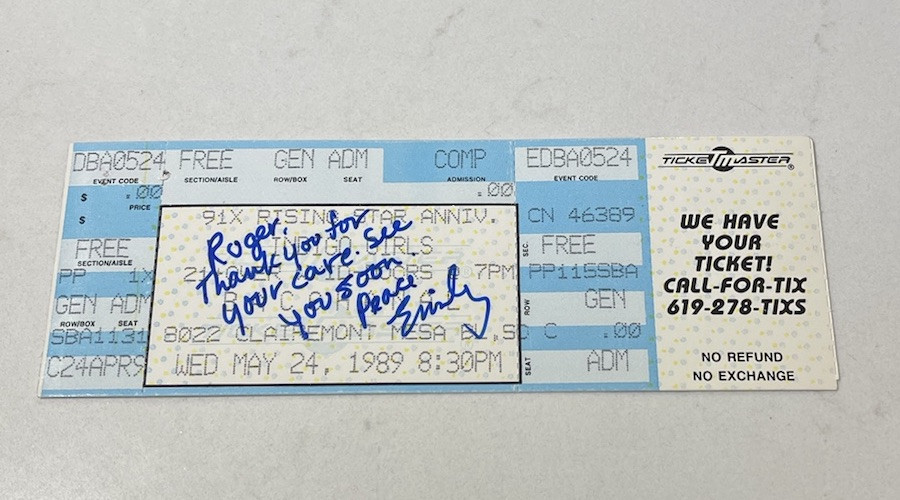 DBA0524 FREE GEN ADM COMP EDBA0524
EVENT CODE SECTION/AISLE ROW/BOX SEAT ADMISSION EVENT CODE
$ .00 .00
PRICE
$
91X RISING STAR ANNIV.
INDIGO GIRLS
7PM
8022 CLAIREMONT MESA
WED MAY 24, 1989 8:30PM
Roger,
Thank you for
your care. See
you soon.
Peace
Emily
FREE
SECTION/AISLE
PP 1X
GEN ADM
ROW/BOX SEAT
SBA1131
C24APR9
CN 46389
SEC. FREE
PP115SBA
ROW GEN
C .00
SEAT ADM
TICKETMASTER®
WE HAVE
YOUR
TICKET!
CALL-FOR-TIX
619-278-TIXS
NO REFUND
NO EXCHANGE